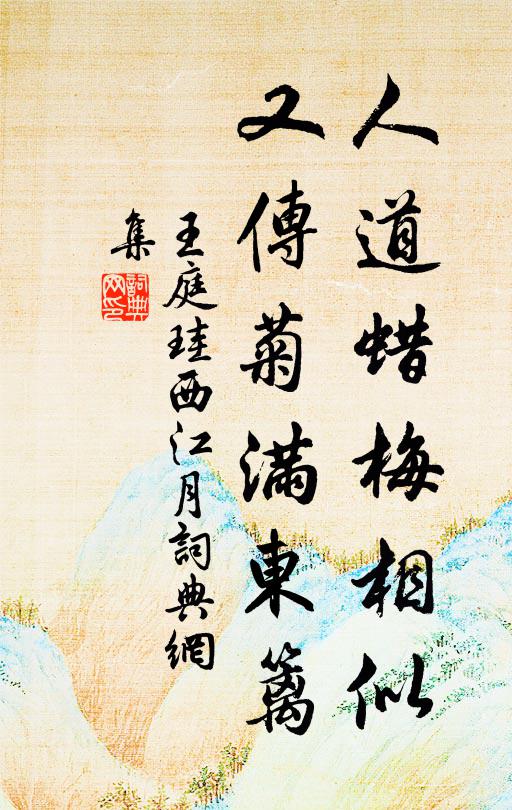 人道蜡梅相似
又傳菊满東籬
王庭珪西江月詞典網
集
詞典
网印